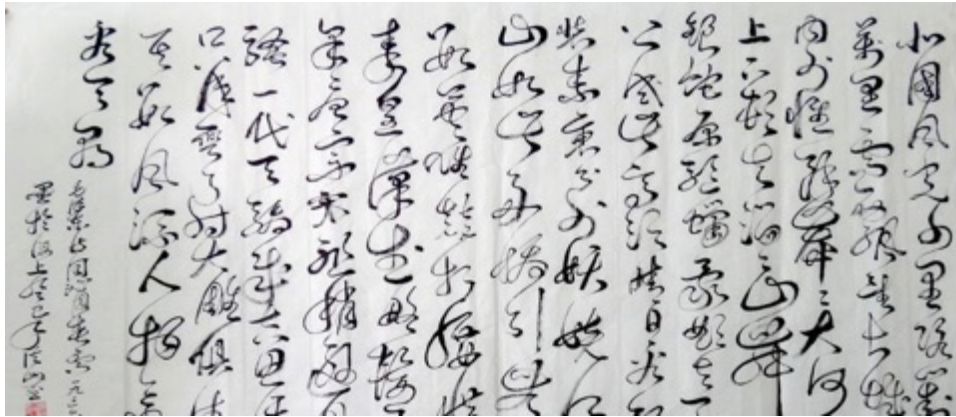 北國風光千里冰封
萬里雪飄望長城
內外惟餘莽莽大河
上下頓失滔滔山舞
銀蛇原馳蠟象欲與天
公試比高須晴日看紅
裝素裹分外妖嬈江
山如此多嬌引無
數英雄競折腰惜
秦皇漢武略輸
采唐宗宋祖稍遜風
騷一代天驕成吉思汗
只識彎弓射大雕俱往
矣數風流人物還
看今朝
毛澤東詞沁園春雪
墨於海上癸巳年